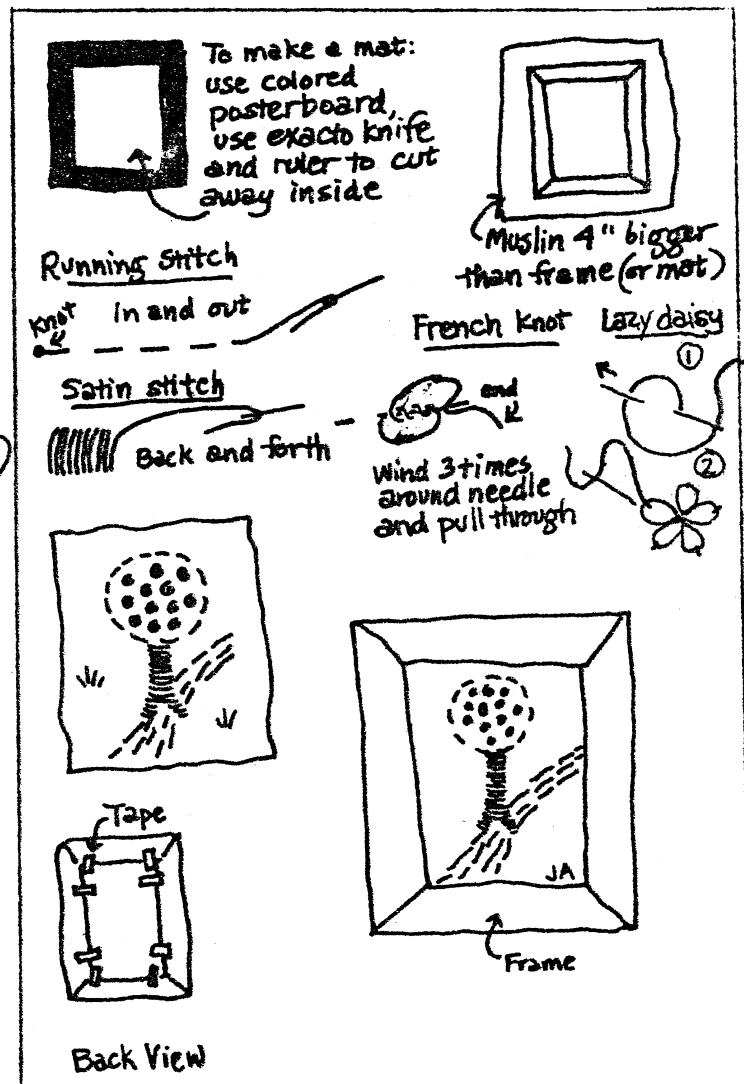 To make a mat:
use colored
posterboard,
use exacto knife
and ruler to cut
away inside
Muslin 4" bigger
than frame (or mat)
Running stitch
Knot
In and out
French knot
Lazy daisy
1
Satin stitch
Back and forth
end
Wind 3 times
around needle
and pull through
2
Tape
JA
Frame
Back View